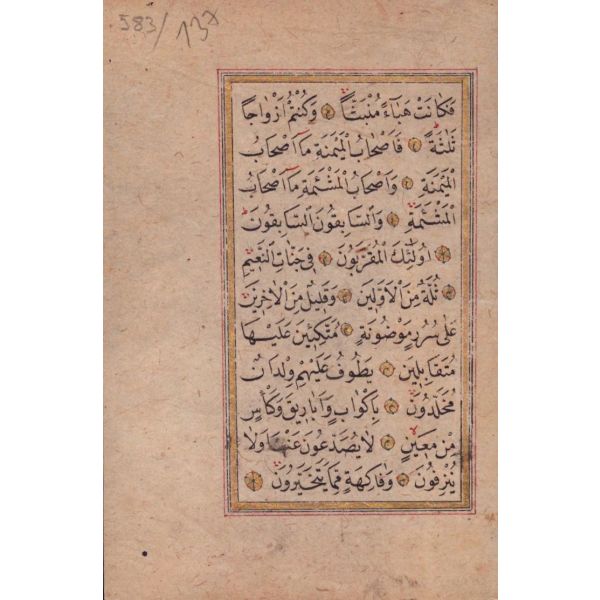 583/13x
فَكَانَتْ هَبَاءً مُنْبَثًّا وَكُنْتُمْ اَزْوَاجًا
ثَلٰثَةً فَاَصْحَابُ الْمَيْمَنَةِ مَا اَصْحَابُ
الْمَيْمَنَةِ وَاَصْحَابُ الْمَشْئَمَةِ مَا اَصْحَابُ
الْمَشْئَمَةِ وَالسَّابِقُونَ السَّابِقُونَ
اُولٰئِكَ الْمُقَرَّبُونَ فِى جَنَّاتِ النَّعِيمِ
ثُلَّةٌ مِنَ الْاَوَّلِينَ وَقَلِيلٌ مِنَ الْاٰخِرِينَ
عَلٰى سُرُرٍ مَوْضُونَةٍ مُتَّكِئِينَ عَلَيْهَا
مُتَقَابِلِينَ يَطُوفُ عَلَيْهِمْ وِلْدَانٌ
مُخَلَّدُونَ بِاَكْوَابٍ وَاَبَارِيقَ وَكَأْسٍ
مِنْ مَعِينٍ لَا يُصَدَّعُونَ عَنْهَا وَلَا
يُنْزِفُونَ وَفَاكِهَةٍ مِمَّا يَتَخَيَّرُونَ